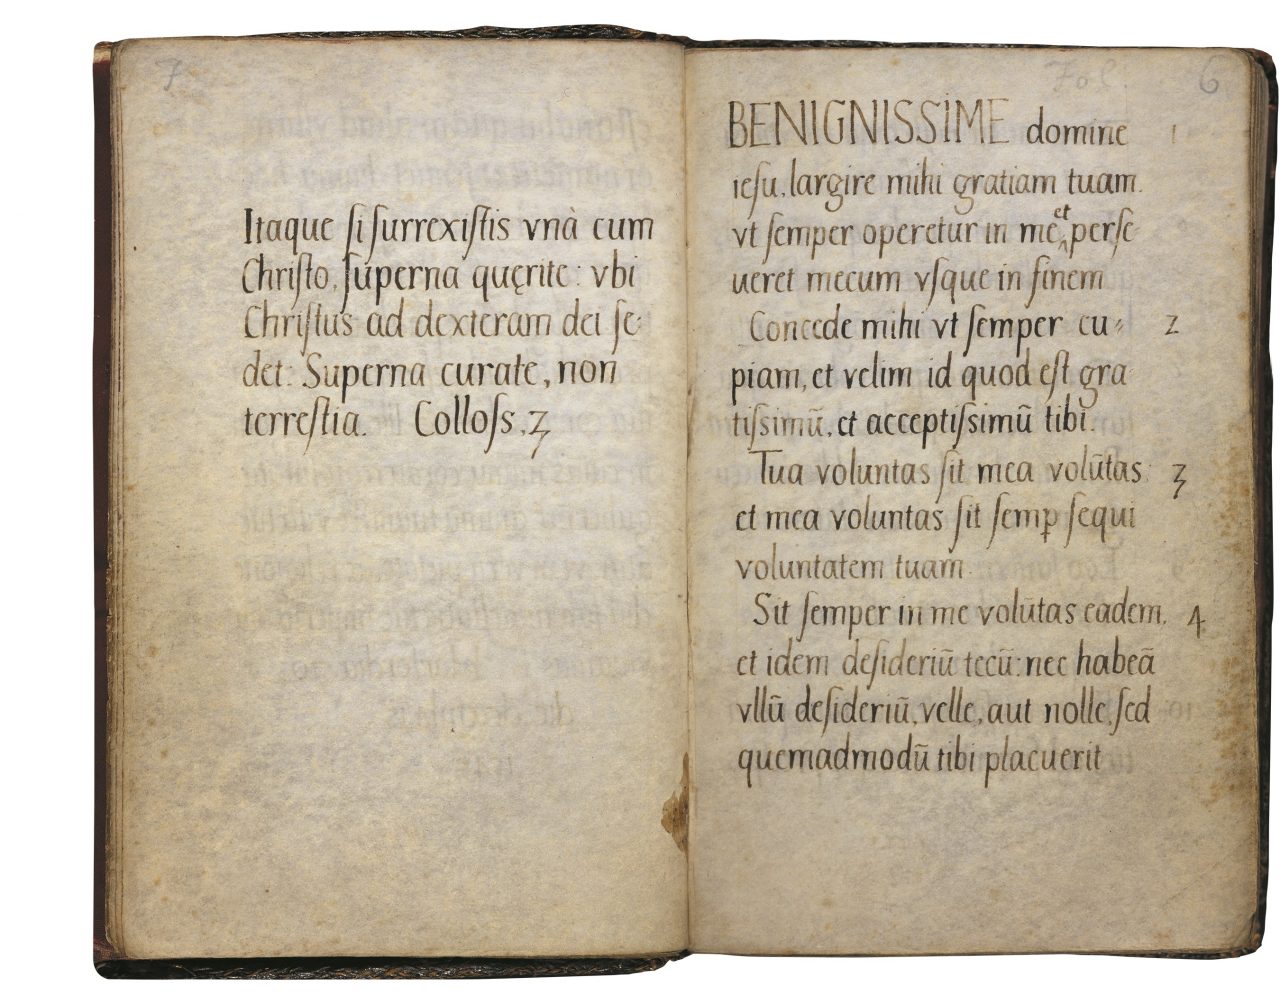 7
Itaque si surrexistis vnà cum
Christo, superna quęrite: vbi
Christus ad dexteram dei se-
det: Superna curate, non
terrestia. Colloss. 3
Fol. 6
BENIGNISSIME domine 1
iesu, largire mihi gratiam tuam.
vt semper operetur in me ^et perse
ueret mecum vsque in finem
Concede mihi vt semper cu= 2
piam, et velim id quod est gra
tissimū, et acceptissimū tibi.
Tua voluntas sit mea volūtas: 3
et mea voluntas sit semꝑ sequi
voluntatem tuam
Sit semper in me volūtas eadem, 4
et idem desideriū tecū: nec habeā
vllū desideriū, velle, aut nolle, sed
quemadmodū tibi placuerit